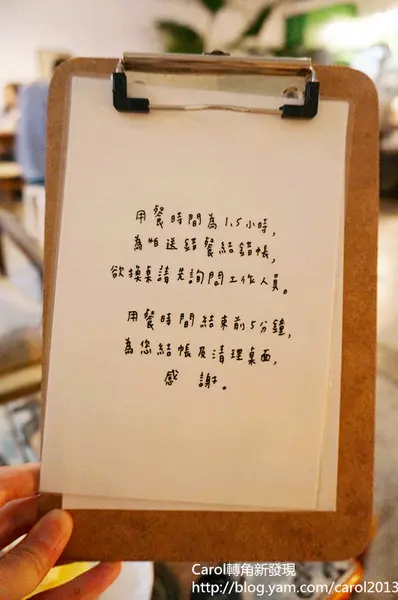 用餐時間為1.5小時,
為怕送錯餐結錯帳,
欲換桌請先詢問工作人員。
用餐時間結束前5分鐘,
為您結帳及清理桌面,
感謝。
Carol轉角新發現
http://blog.yam.com/carol2013